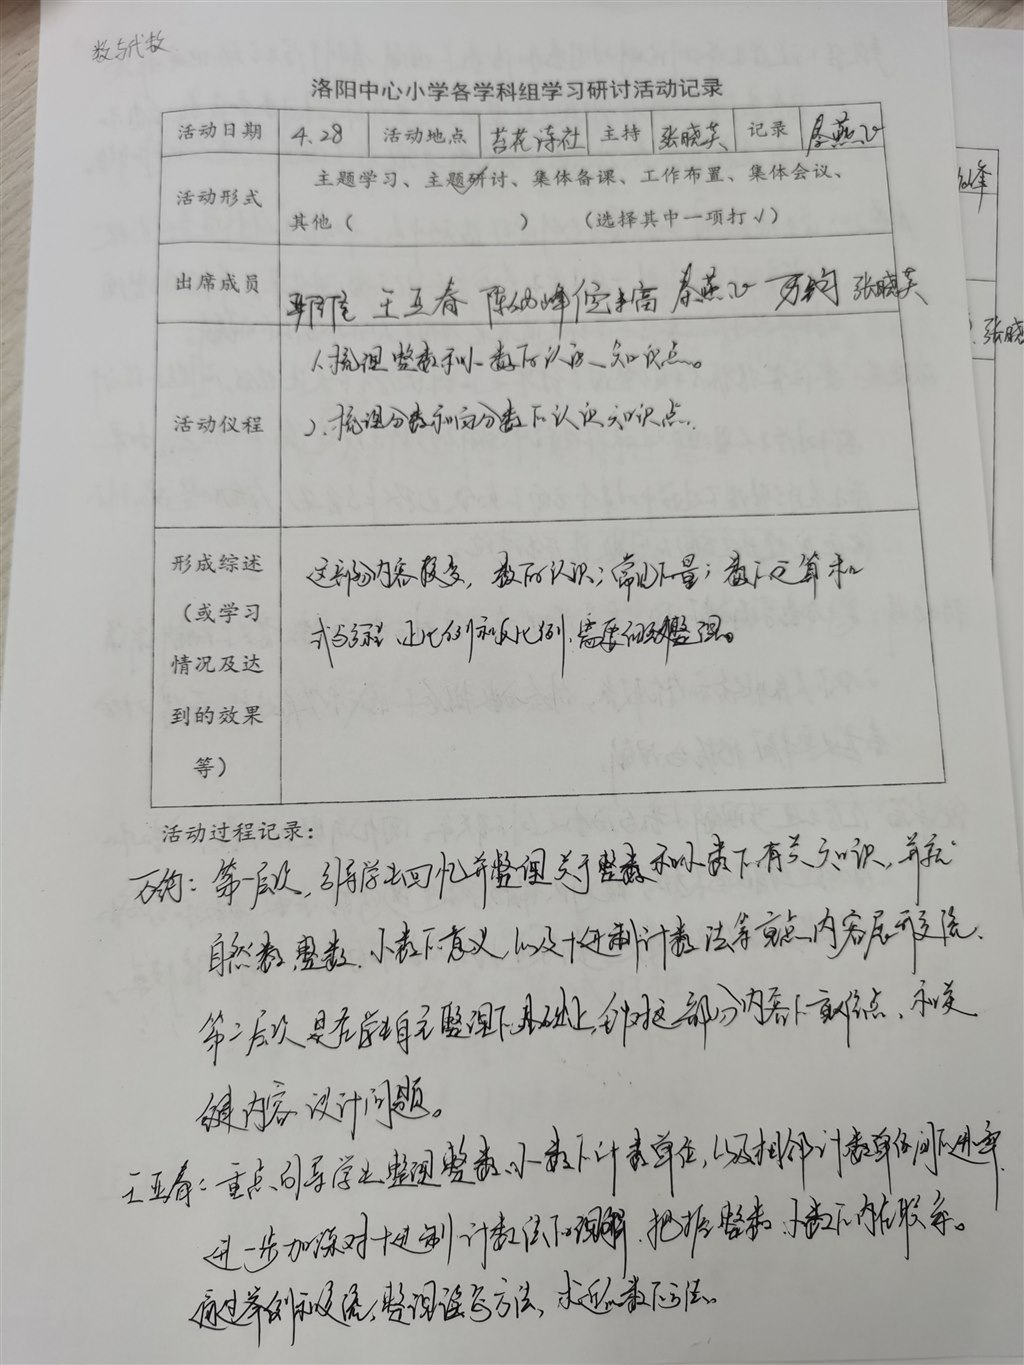 数与代数
洛阳中心小学各学科组学习研讨活动记录
活动日期 4.28 活动地点 苔花诗社 主持 张晓英 记录 秦燕
活动形式 主题学习、主题研讨、集体备课、工作布置、集体会议、
其他（ ） （选择其中一项打√）
出席成员 王亚春 陈仙峰 秦燕 万钧 张晓英
活动仪程
1、梳理整数和小数的认识知识点。
2、梳理分数和百分数的认识知识点。
形成综述
（或学习
情况及达
到的效果
等）
这部分内容较多，数的认识；常见的量；数的运算和
式与方程 正比例和反比例，需要细致整理。
活动过程记录：
万钧：第一层次，引导学生回忆并整理关于整数和小数的有关知识，并就
自然数、整数、小数的意义，以及十进制计数法等重点内容展开交流、
第二层次是在学生自主整理的基础上，针对这一部分内容的重难点、和关
键内容设计问题。
王亚春：重点引导学生整理整数、小数的计数单位，以及相邻计数单位间的进率
进一步加深对十进制计数法的理解，把握整数、小数的内在联系。
通过举例和交流，整理读写方法，求近似数的方法。
仙峰
张晓英